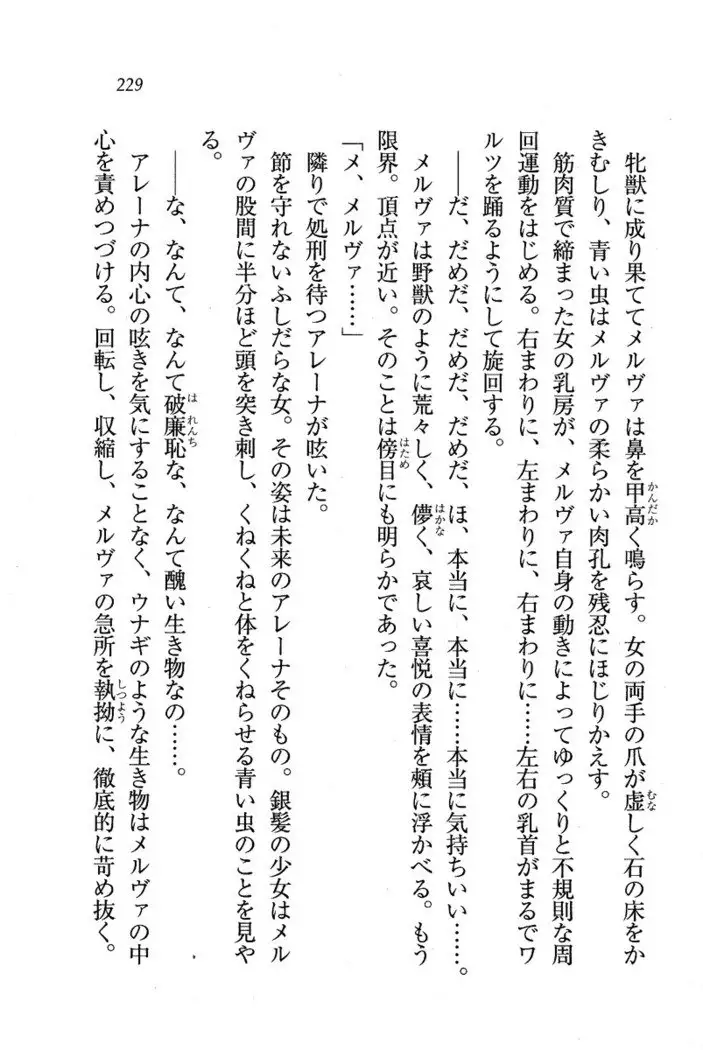 229
牝獣に成り果ててメルヴァは鼻を甲高く鳴らす。女の両手の爪が虚しく石の床をか
きむしり、青い虫はメルヴァの柔らかい肉孔を残忍にほじりかえす。
筋肉質で締まった女の乳房が、メルヴァ自身の動きによってゆっくりと不規則な周
回運動をはじめる。右まわりに、左まわりに、右まわりに……左右の乳首がまるでワ
ルツを踊るようにして旋回する。
――だ、だめだ、だめだ、だめだ、ほ、本当に、本当に……本当に気持ちいい……。
メルヴァは野獣のように荒々しく、儚く、哀しい喜悦の表情を頰に浮かべる。もう
限界。頂点が近い。そのことは傍目にも明らかであった。
「メ、メルヴァ……」
隣りで処刑を待つアレーナが呟いた。
節を守れないふしだらな女。その姿は未来のアレーナそのもの。銀髪の少女はメル
ヴァの股間に半分ほど頭を突き刺し、くねくねと体をくねらせる青い虫のことを見や
る。
――な、なんて、なんて破廉恥な、なんて醜い生き物なの……。
アレーナの内心の呟きを気にすることなく、ウナギのような生き物はメルヴァの中
心を責めつづける。回転し、収縮し、メルヴァの急所を執拗に、徹底的に苛め抜く。